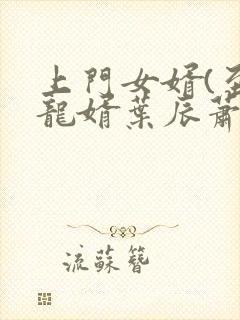 上門女婿(
龍婿葉辰蕭
流蘇簪